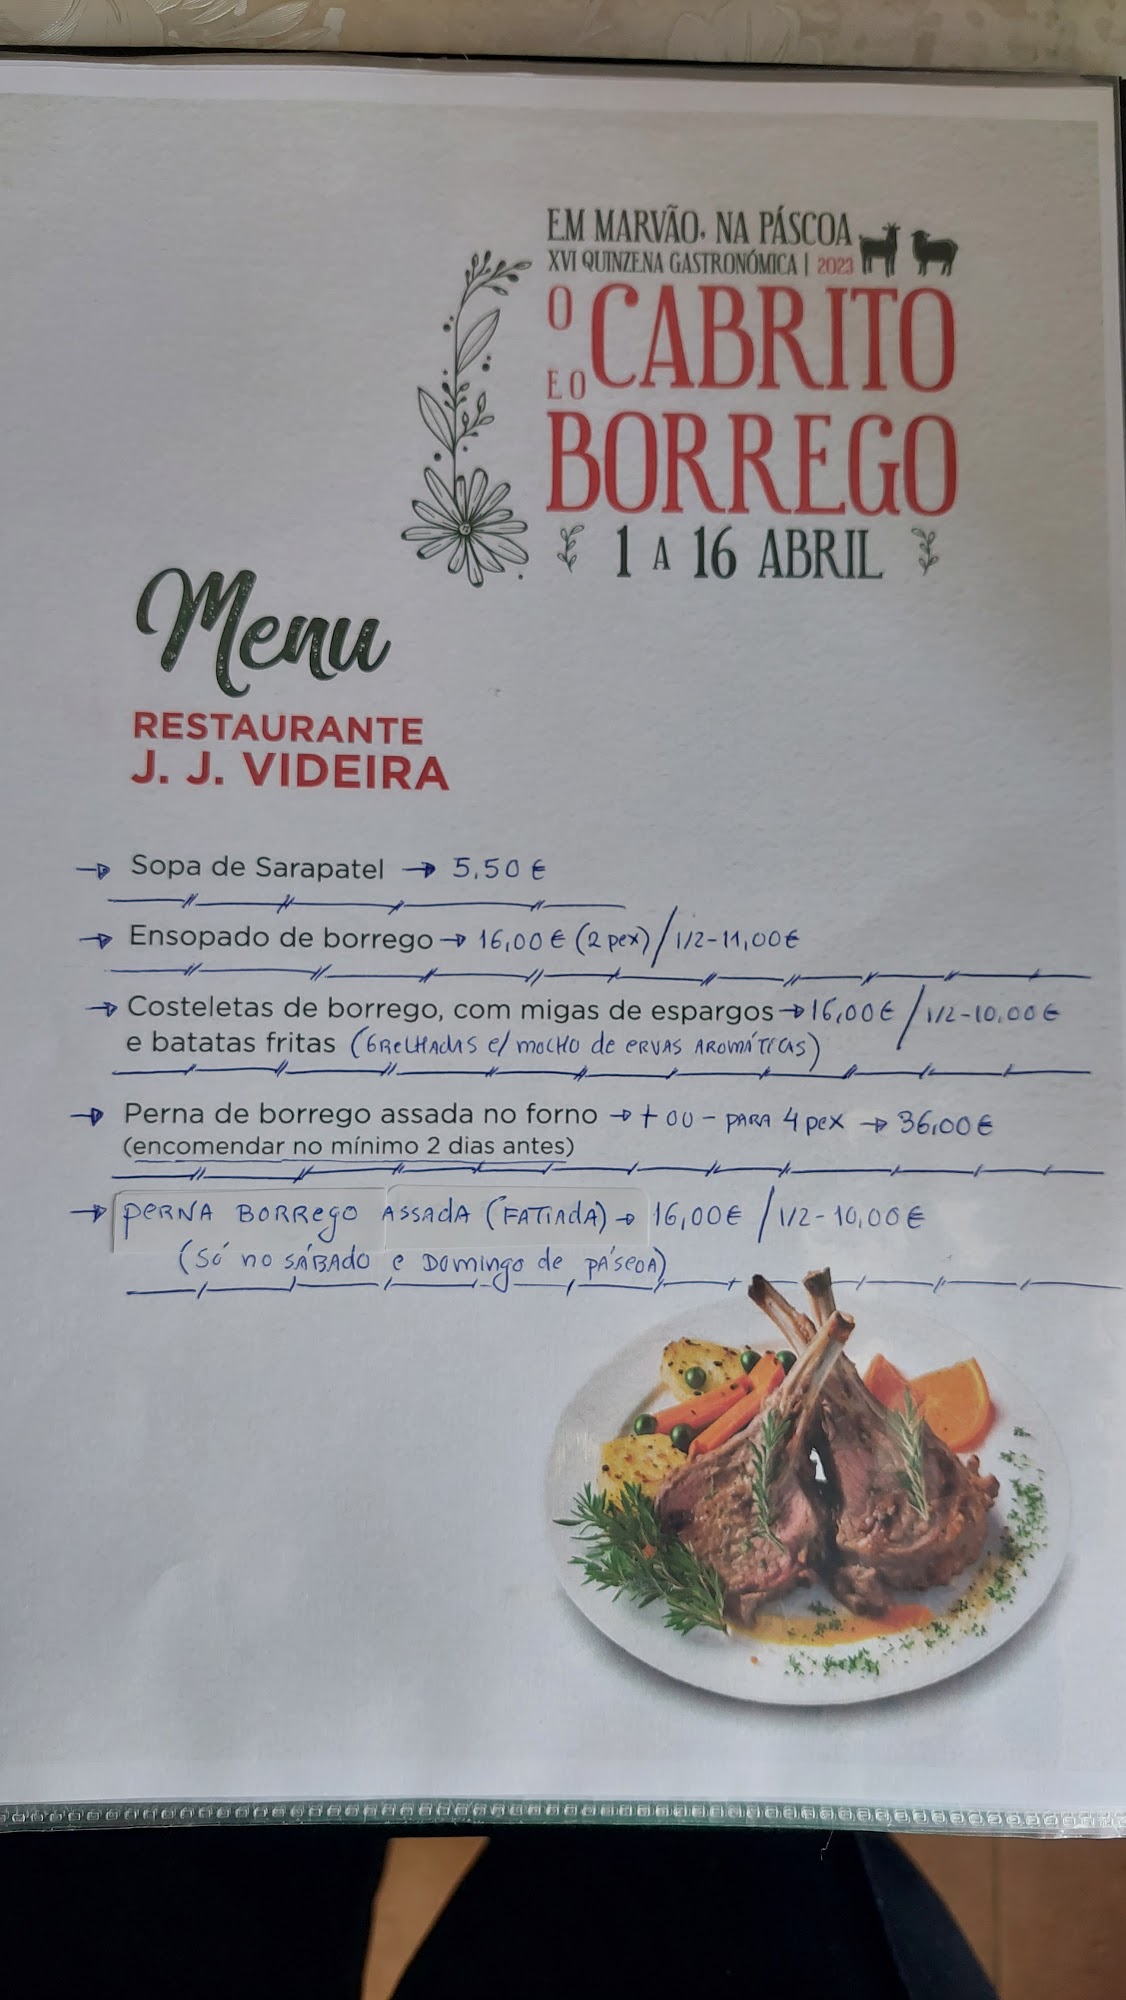 EM MARVÃO, NA PÁSCOA
XVI QUINZENA GASTRONÓMICA | 2023
O CABRITO
E O
BORREGO
1 A 16 ABRIL
Menu
RESTAURANTE
J. J. VIDEIRA
→ Sopa de Sarapatel → 5,50 €
→ Ensopado de borrego → 16,00 € (2 pex) / 1/2-11,00€
→ Costeletas de borrego, com migas de espargos → 16,00€ / 1/2-10,00€
e batatas fritas (GRELHADAS c/ MOLHO de ERVAS AROMÁTICAS)
→ Perna de borrego assada no forno → + ou - PARA 4 pex → 36,00€
(encomendar no mínimo 2 dias antes)
→ PERNA BORREGO ASSADA (FATIADA) → 16,00€ / 1/2-10,00€
(Só no SÁBADO e DOMINGO de PÁSCOA)